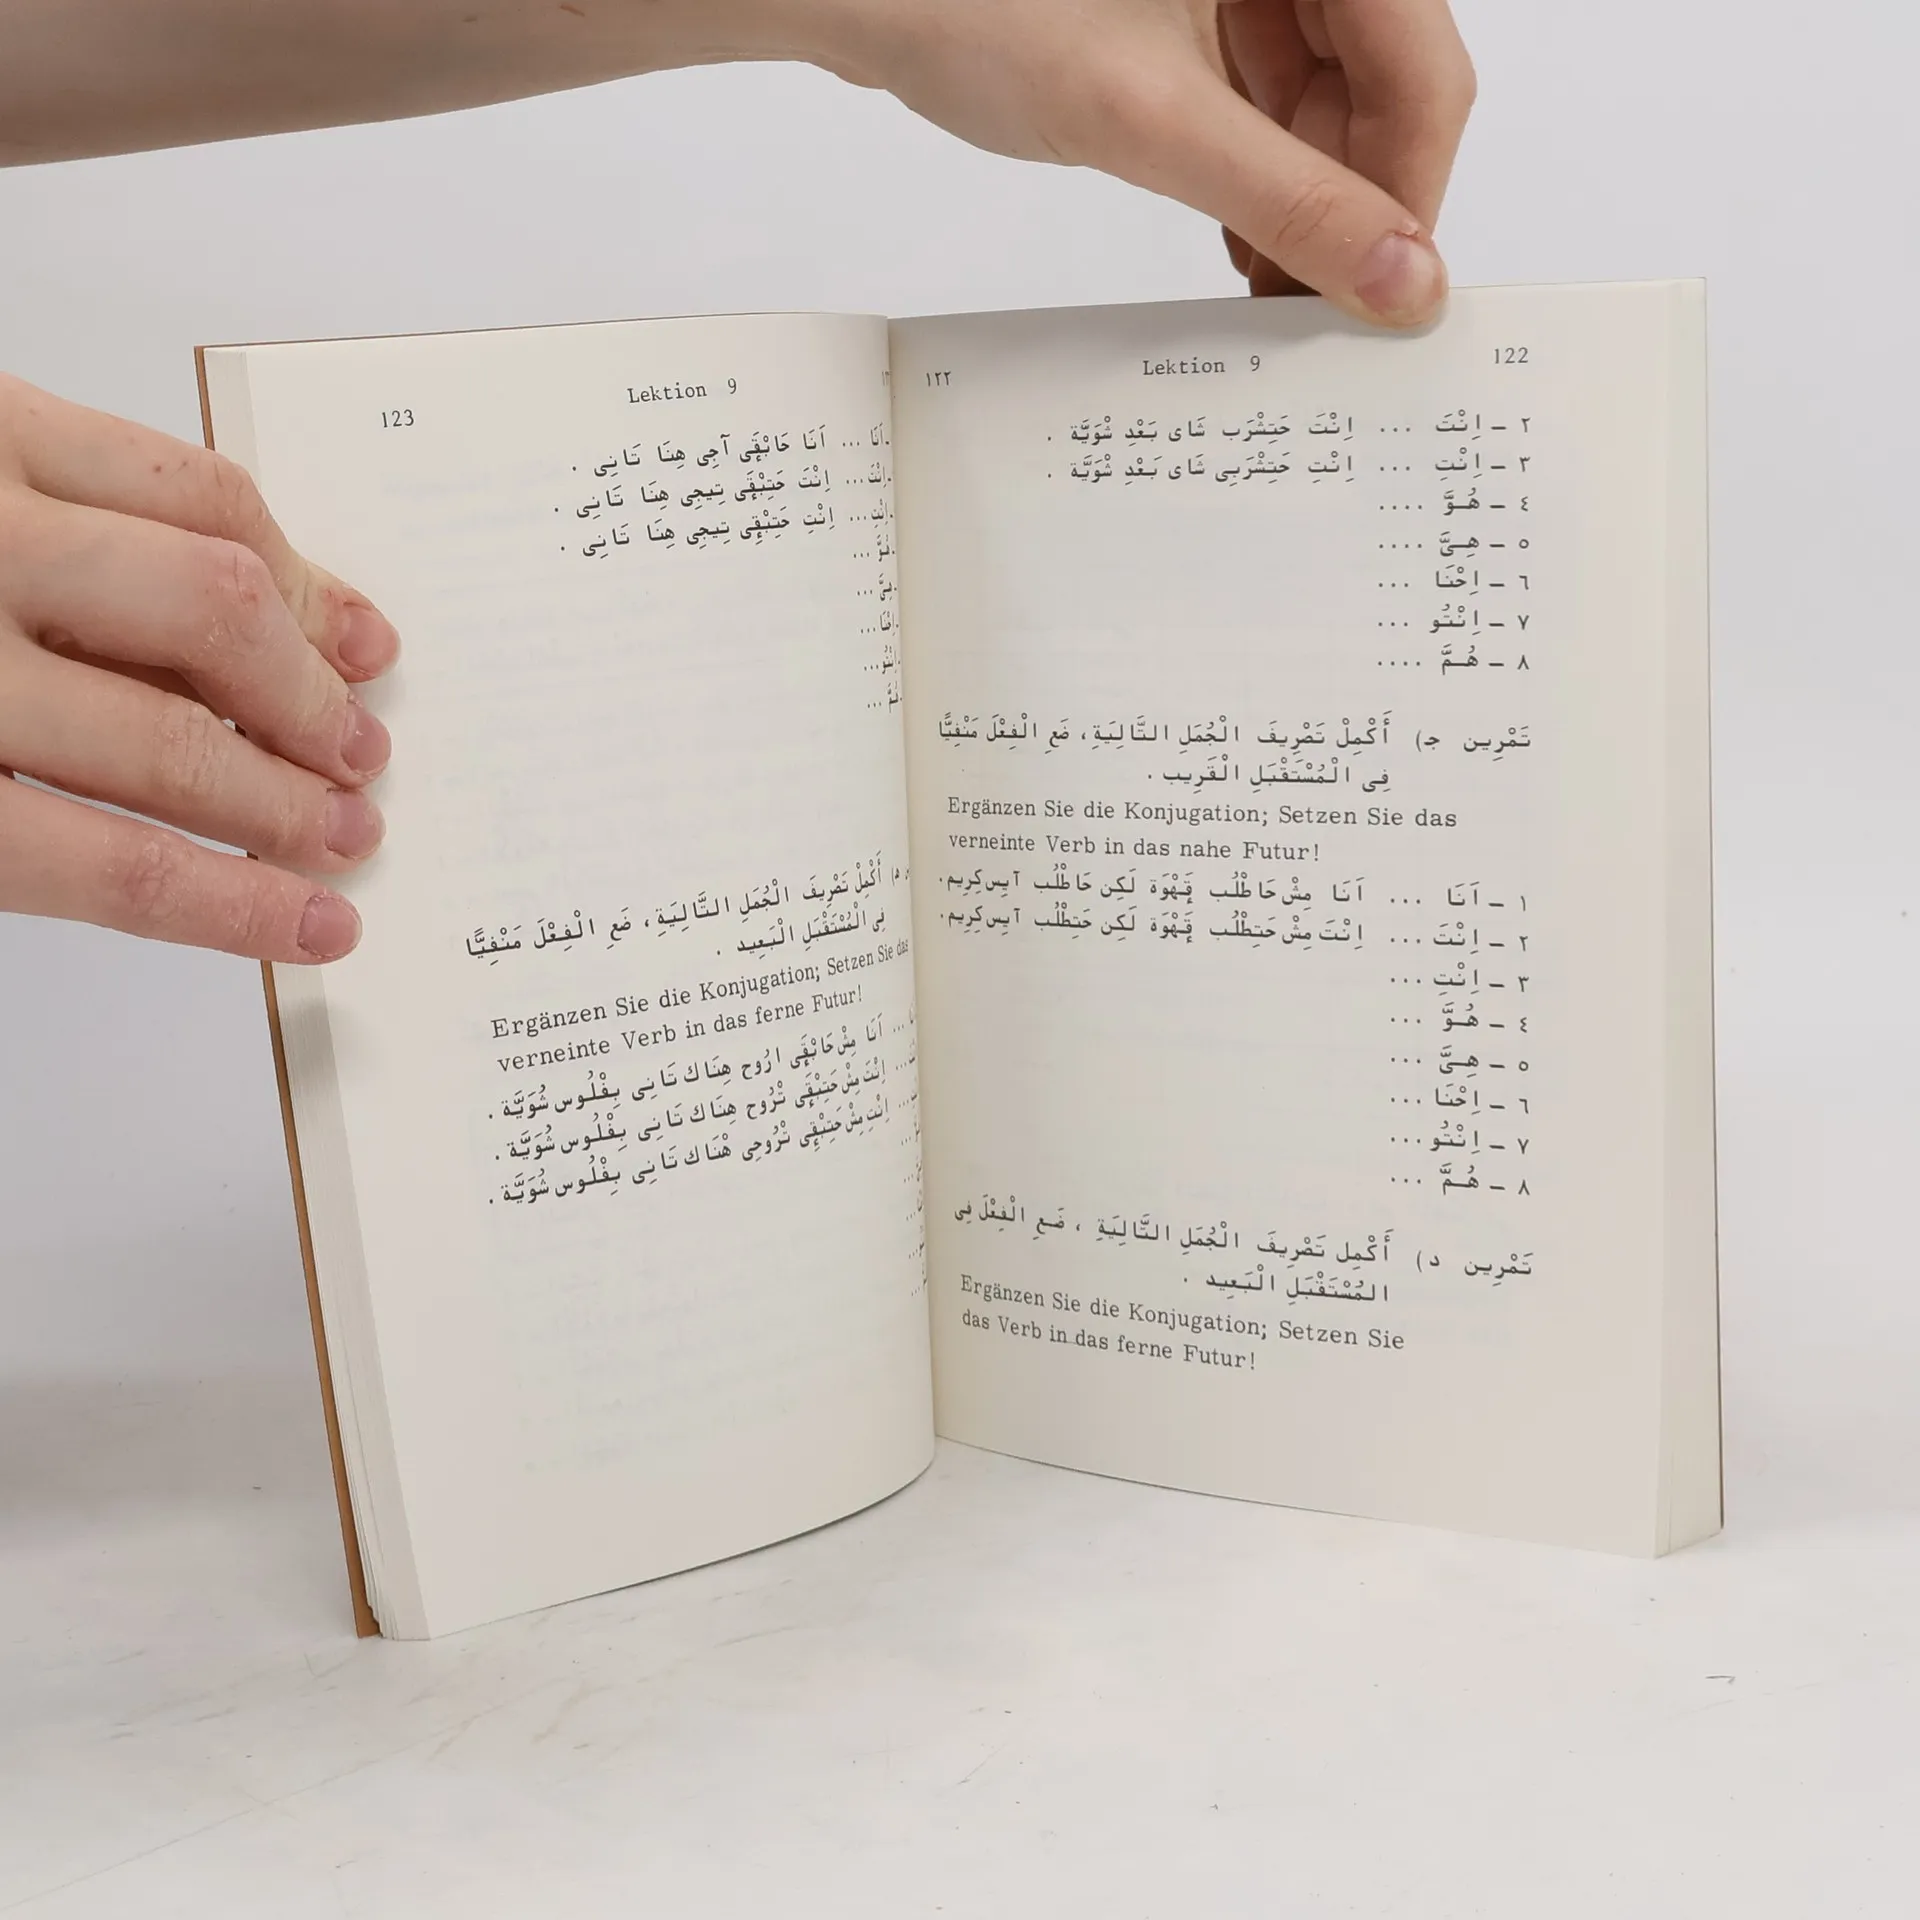 ١٢٢ Lektion 9 122
٢ – اِنْتَ ... اِنْتَ حَتِشْرَب شَاى بَعْدِ شْوَيَّة .
٣ – اِنْتِ ... اِنْتِ حَتِشْرَبِى شَاى بَعْدِ شْوَيَّة .
٤ – هُوَّ ....
٥ – هِىَّ ....
٦ – اِحْنَا ...
٧ – اِنْتُو ...
٨ – هُمَّ ....
تَمْرِين ج) أَكْمِلْ تَصْرِيفَ الْجُمَلِ التَّالِيَةِ، ضَعِ الْفِعْلَ مَنْفِيًّا
فِى الْمُسْتَقْبَلِ الْقَرِيب .
Ergänzen Sie die Konjugation; Setzen Sie das
verneinte Verb in das nahe Futur!
١ – اَنَا ... اَنَا مِشْ حَاطْلُب قَهْوَة لَكِن حَاطْلُب آيِس كِرِيم.
٢ – اِنْتَ ... اِنْتَ مِشْ حَتِطْلُب قَهْوَة لَكِن حَتِطْلُب آيِس كِرِيم.
٣ – اِنْتِ ...
٤ – هُوَّ ...
٥ – هِىَّ ...
٦ – اِحْنَا ...
٧ – اِنْتُو ...
٨ – هُمَّ ...
تَمْرِين د) أَكْمِل تَصْرِيفَ الْجُمَلِ التَّالِيَةِ ، ضَعِ الْفِعْلَ فِى
المُسْتَقْبَلِ الْبَعِيد .
Ergänzen Sie die Konjugation; Setzen Sie
das Verb in das ferne Futur!
Lektion 9 123
اَنَا ... اَنَا حَابْقَى آجِى هِنَا تَانِى .
اِنْتَ ... اِنْتَ حَتِبْقَى تِيجِى هِنَا تَانِى .
اِنْتِ ... اِنْتِ حَتِبْقِى تِيجِى هِنَا تَانِى .
هُوَّ ...
هِىَّ ...
اِحْنَا ...
اِنْتُو ...
هُمَّ ...
ه) أَكْمِلْ تَصْرِيفَ الْجُمَلِ التَّالِيَةِ، ضَعِ الْفِعْلَ مَنْفِيًّا
فِى الْمُسْتَقْبَلِ الْبَعِيد .
Ergänzen Sie die Konjugation; Setzen Sie das
verneinte Verb in das ferne Futur!
... اَنَا مِشْ حَابْقَى ارُوح هِنَاك تَانِى بِفْلُوس شُوَيَّة .
... اِنْتَ مِشْ حَتِبْقَى تْرُوح هِنَاك تَانِى بِفْلُوس شُوَيَّة .
... اِنْتِ مِشْ حَتِبْقِى تْرُوحِى هْنَاك تَانِى بِفْلُوس شُوَيَّة .